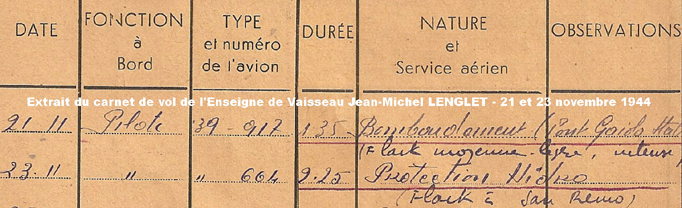 DATE FONCTION à Bord TYPE et numéro de l'avion DURÉE NATURE et Service aérien OBSERVATIONS
Extrait du carnet de vol de l'Enseigne de Vaisseau Jean-Michel LENGLET - 21 et 23 novembre 1944
21.11 Pilote 39 - 917 1.35 Bombardement (Pont
(Flack moyenne légère,
23.11 " " 604 2.25 Protection Hidro
(Flack à San Remo)